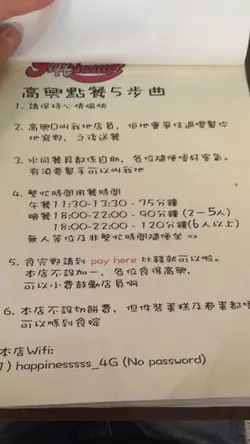 高興點餐5步曲
1. 請保持心情愉快
2. 高興D叫我地店員，佢地會單住過嚟幫你
地寫野，之後送餐
3. 水同餐具都係自助，各位隨便唔好客氣。
有須要幫手可以叫我地
4. 繁忙時間用餐時間
午餐11:30-13:30 - 75分鐘
晚餐18:00-22:00 - 90分鐘 (2-5人)
18:00-22:00 - 120分鐘(6人以上)
無人等位及非繁忙時間隨便坐 =>
5. 食完野請到 pay here 比錢就可以啦。
本店不設加一，各位食得高興，
可以小費鼓勵店員啊
6. 本店不設切餅費，但件裝蛋糕及卷蛋都唔
可以喺到食㗎
本店Wifi:
1) happinesssss_4G (No password)